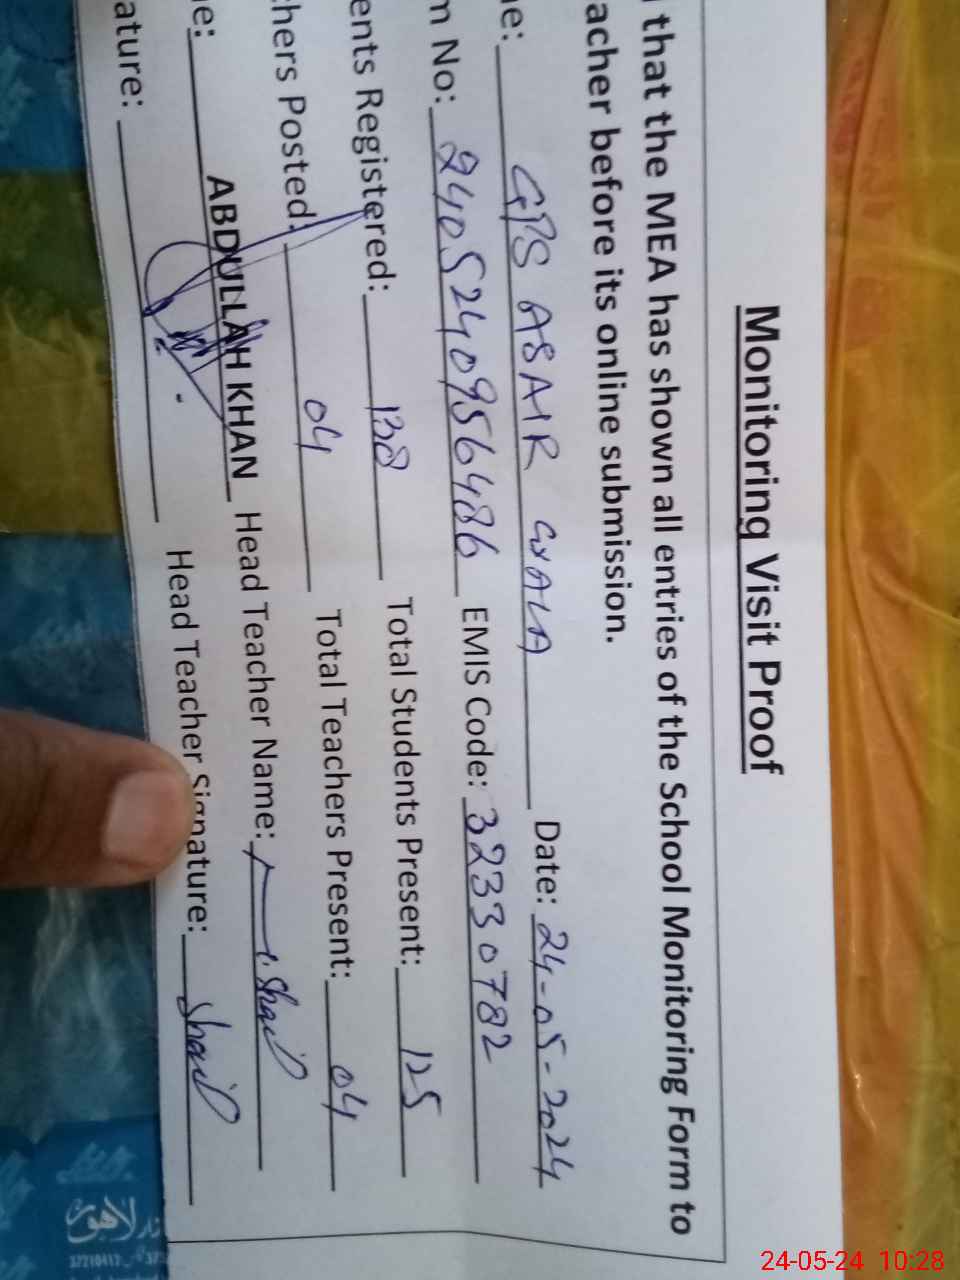 Monitoring Visit Proof
that the MEA has shown all entries of the School Monitoring Form to
acher before its online submission.
e: GPS ASAIR WALA Date: 24-05-2024
m No: 2405240956486 EMIS Code: 32330782
ents Registered: 138 Total Students Present: 125
chers Posted: 04 Total Teachers Present: 04
e: ABDULLAH KHAN Head Teacher Name:
ature: Head Teacher Signature:
لاهور
24-05-24 10:28